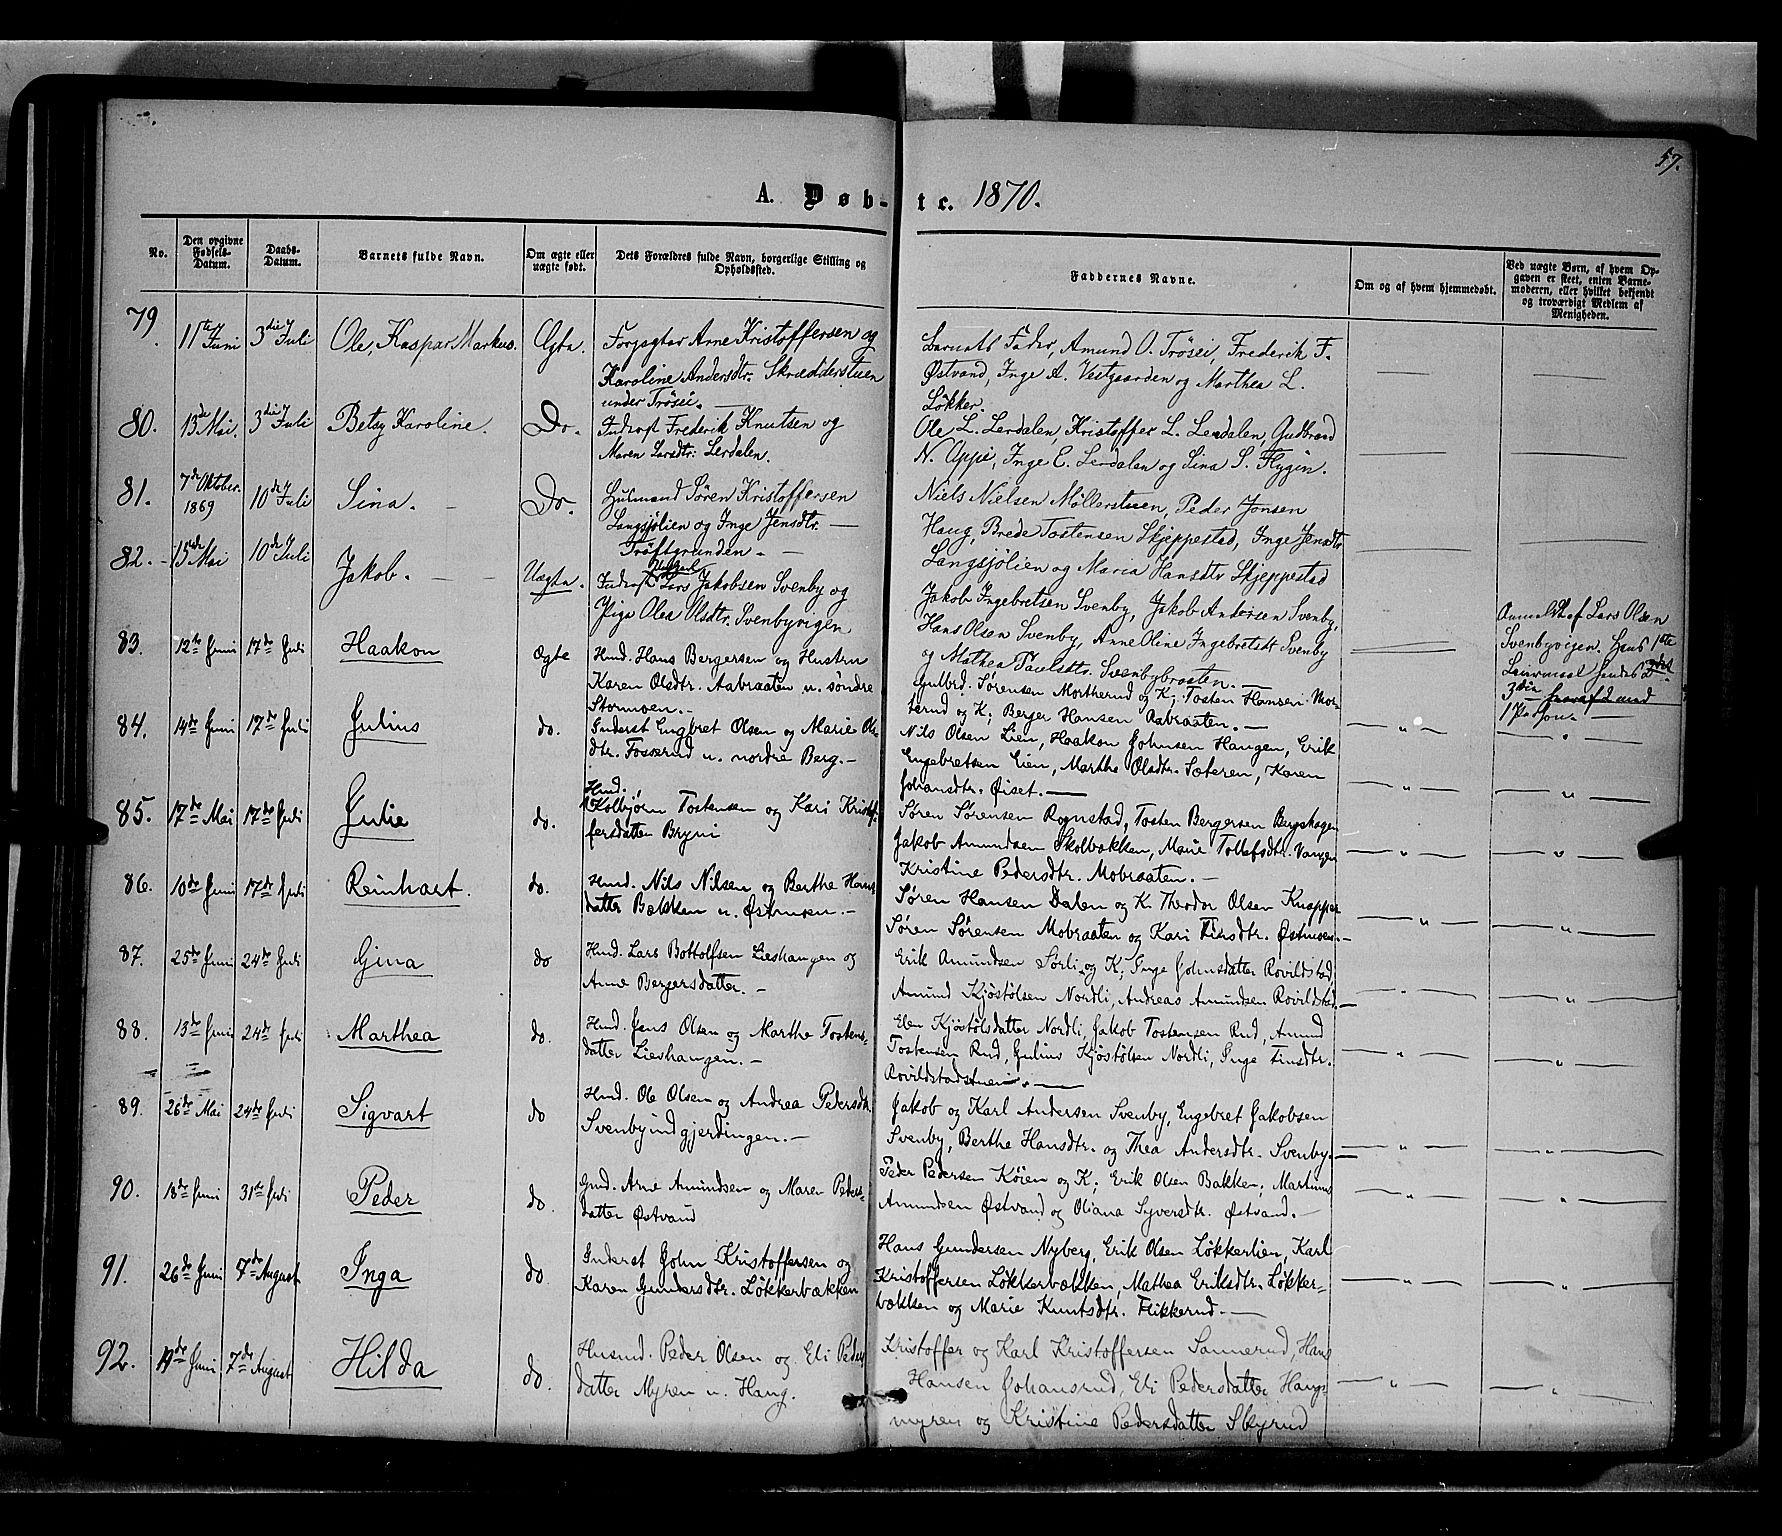 57.
A. Døb-te. 1870.
No.
Den opgivne Fødsels-Datum.
Daabs-Datum.
Barnets fulde Navn.
Om ægte eller uægte født.
Dets Forældres fulde Navn, borgerlige Stilling og Opholdssted.
Faddernes Navne.
Om og af hvem hjemmedøbt.
Ved uægte Børn, af hvem Opgaven er skeet, enten Barnemoderen, eller hvilket bekjendt og troværdigt Medlem af Menigheden.
79. 11te Juni 3die Juli Ole, Kaspar Markus. Ægta. Forpagter Arne Kristoffersen og
Karoline Andersdtr. Skrædderstuen
under Trösei. —
Barnets Fader, Amund O. Trösei, Frederik F.
Østvand, Inge A. Vestgaarden og Marthea L.
Løkker.
80. 13de Mai. 3die Juli Betsy Karoline. Do. Inderst Frederik Knutsen og
Maren Larsdtr. Lerdalen.
Ole L. Lerdalen, Kristoffer L. Lerdalen, Gudbrand
N. Oppi, Inge E. Lerdalen og Lina S. Flygin.
81. 7de Oktober. 1869 10de Juli Sina. — Do. Huusmand Sören Kristoffersen
Langsjölien og Inge Jensdtr. —
Tröftgrunden. —
Niels Nielsen Möllerstuen, Peder Jonsen
Haug, Brede Tostensen Skjeppestad, Inge Jensdtr
Langsjölien og Maria Hansdtr Skjeppestad
82. 15de Mai 10de Juli Jakob. — — Uægta. Inderst Lars Jakobsen Svenby og
Pige Olea Olsdtr. Svenbyvigen
Jakob Ingebretsen Svenby, Jakob Andersen Svenby,
Hans Olsen Svenby, Anne Oline Ingebretsdt Svenby
og Mathea Paulsdtr. Svenbybraaten. —
Anmeldt af Lars Olsen
Svenbyvigen. Hans 1ste
Leiermaal hendes
83. 12te Juni 17de Juli Haakon Ægte Hmd. Hans Bergersen og Hustru
Karen Olsdtr. Aabraaten u. søndre
Stormoen. —
Gulbrd. Sørensen Mortherud og K; Tosten Hansen Mor-
terud og K; Berger Hansen Aabraaten. —
84. 14de Juni 17de Juli Julius do. Inderst Engbret Olsen og Marie Ols
dtr. Fosserud u. nordre Berg. —
Nils Olsen Lien, Haakon Johnsen Haugen, Erik
Engebretsen Lien, Marthe Olsdtr. Sæteren, Karen
Johansdtr. Øiset. —
85. 17de Mai 17de Juli Julie do. Hmd.
Kolbjørn Tostensen og Kari Kristof-
fersdatter Bryni
Søren Sørensen Rognstad, Tosten Bergersen Bergskogen
Jakob Amundsen Skolbakken, Marie Tollefsdtr. Vangen
Kristine Pedersdtr. Mobraaten. —
86. 10de Juni 17de Juli Reinhart. do. Hmd. Nils Nilsen og Berthe Hans
datter Bækken u. Østmoen. —
Søren Hansen Dalen og K. Theodor Olsen Knapper
Søren Sørensen Mobraaten og Kari Finsdtr. Østmoen. —
87. 25de Juni 24de Juli Gina do Hmd. Lars Bottolfsen Lieshaugen og
Anne Bergersdatter. —
Erik Amundsen Sørli og K; Inge Johnsdatter Rovildstad,
Amund Kjøstølsen Nordli, Andreas Amundsen Rovildstad —
88. 13de Juni 24de Juli Marthea do. Hmd. Jens Olsen og Marthe Tostens-
datter Lieshaugen. —
Elen Kjøstølsdatter Nordli, Jakob Tostensen Rud, Amund
Tostensen Rud, Julius Kjøstølsen Nordli, Inge Finsdtr.
Rovildstadstuen. —
89. 26de Mai 24de Juli Sigvart do Hmd. Ole Olsen og Andrea Pedersdtr.
Svenbyindgjerdingen. —
Jakob og Karl Andersen Svenby, Engebret Jakobsen
Svenby, Berthe Hansdtr. og Thea Andersdtr. Svenby. —
90. 18de Juni 31te Juli Peder do. Gmd. Arne Amundsen og Maren Peders-
datter Østvand
Peder Pedersen Køien og K; Erik Olsen Bakken; Martinus
Amundsen Østvand og Oliana Syversdtr. Østvand. —
91. 26de Juni 7de August Inga do Inderst John Kristoffersen og
Karen Gundersdtr. Løkkerbækken
Hans Gundersen Nyberg, Erik Olsen Løkkerlien, Karl
Kristoffersen Løkkerbækken, Mathea Eriksdtr. Løkker-
bækken og Marie Knutsdtr. Flikkerud. —
92. 19de Juni 7de August Hilda do. Husmd. Peder Olsen og Eli Peders
datter Myren u. Haug.
Kristoffer og Karl Kristoffersen Sannerud, Hans
Hansen Johansrud, Eli Pedersdatter Haug-
myren og Kristine Pedersdatter Skyrud